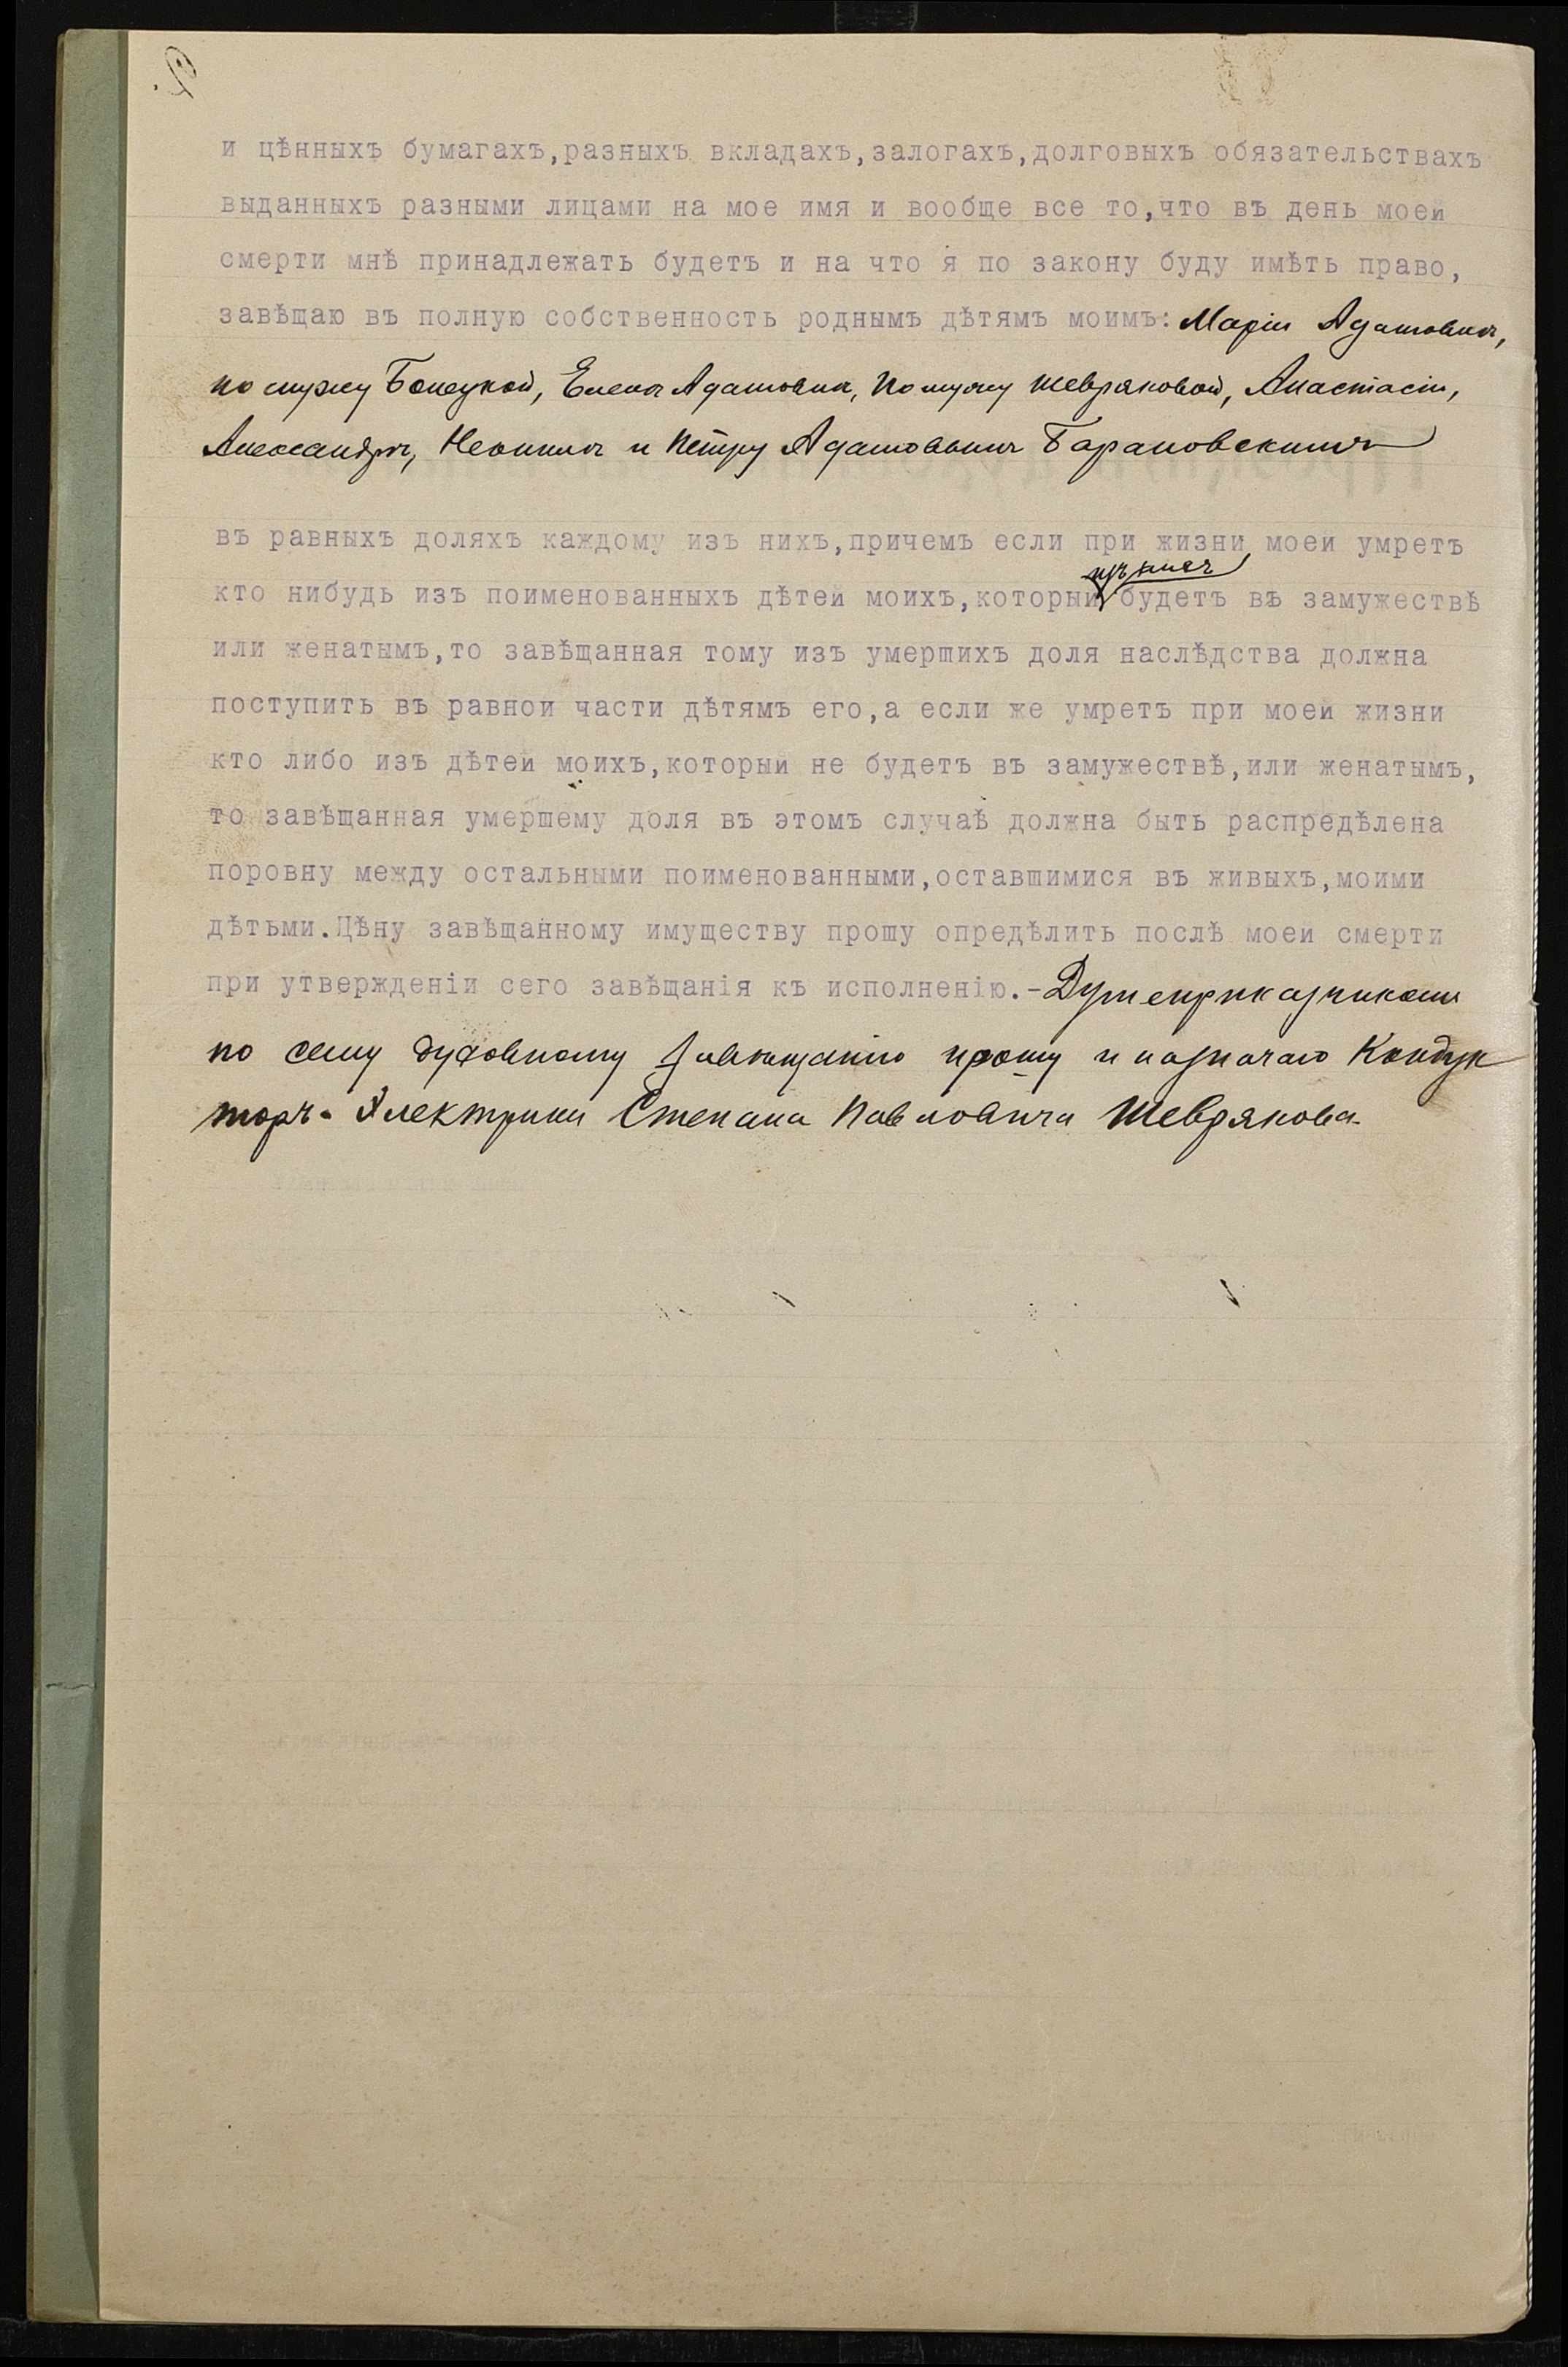 и цѣнныхъ бумагахъ,разныхъ вкладахъ,залогахъ,долговыхъ обязательствахъ
выданныхъ разными лицами на мое имя и вообще все то,что въ день моей
смерти мнѣ принадлежать будетъ и на что я по закону буду имѣть право,
завѣщаю въ полную собственность роднымъ дѣтямъ моимъ: Маріи Адамовнѣ,
по мужу Бонецкой, Еленѣ Адамовнѣ, по мужу Шевряковой, Анастасіи,
Александрѣ, и Петру Адамовымъ Барановскимъ
въ равныхъ доляхъ каждому изъ нихъ,причемъ если при жизни моей умретъ
изъ нихъ
кто нибудь изъ поименованныхъ дѣтей моихъ,который будетъ въ замужествѣ
или женатымъ,то завѣщанная тому изъ умершихъ доля наслѣдства должна
поступить въ равной части дѣтямъ его,а если же умретъ при моей жизни
кто либо изъ дѣтей моихъ,который не будетъ въ замужествѣ,или женатымъ,
то завѣщанная умершему доля въ этомъ случаѣ должна быть распредѣлена
поровну между остальными поименованными,оставшимися въ живыхъ,моими
дѣтьми.Цѣну завѣщанному имуществу прошу опредѣлить послѣ моей смерти
при утвержденіи сего завѣщанія къ исполненію.-Душеприказчикомъ
по сему духовному завѣщанію прошу и назначаю Кондук
торъ- Электрика Степана Павловича Шеврякова.